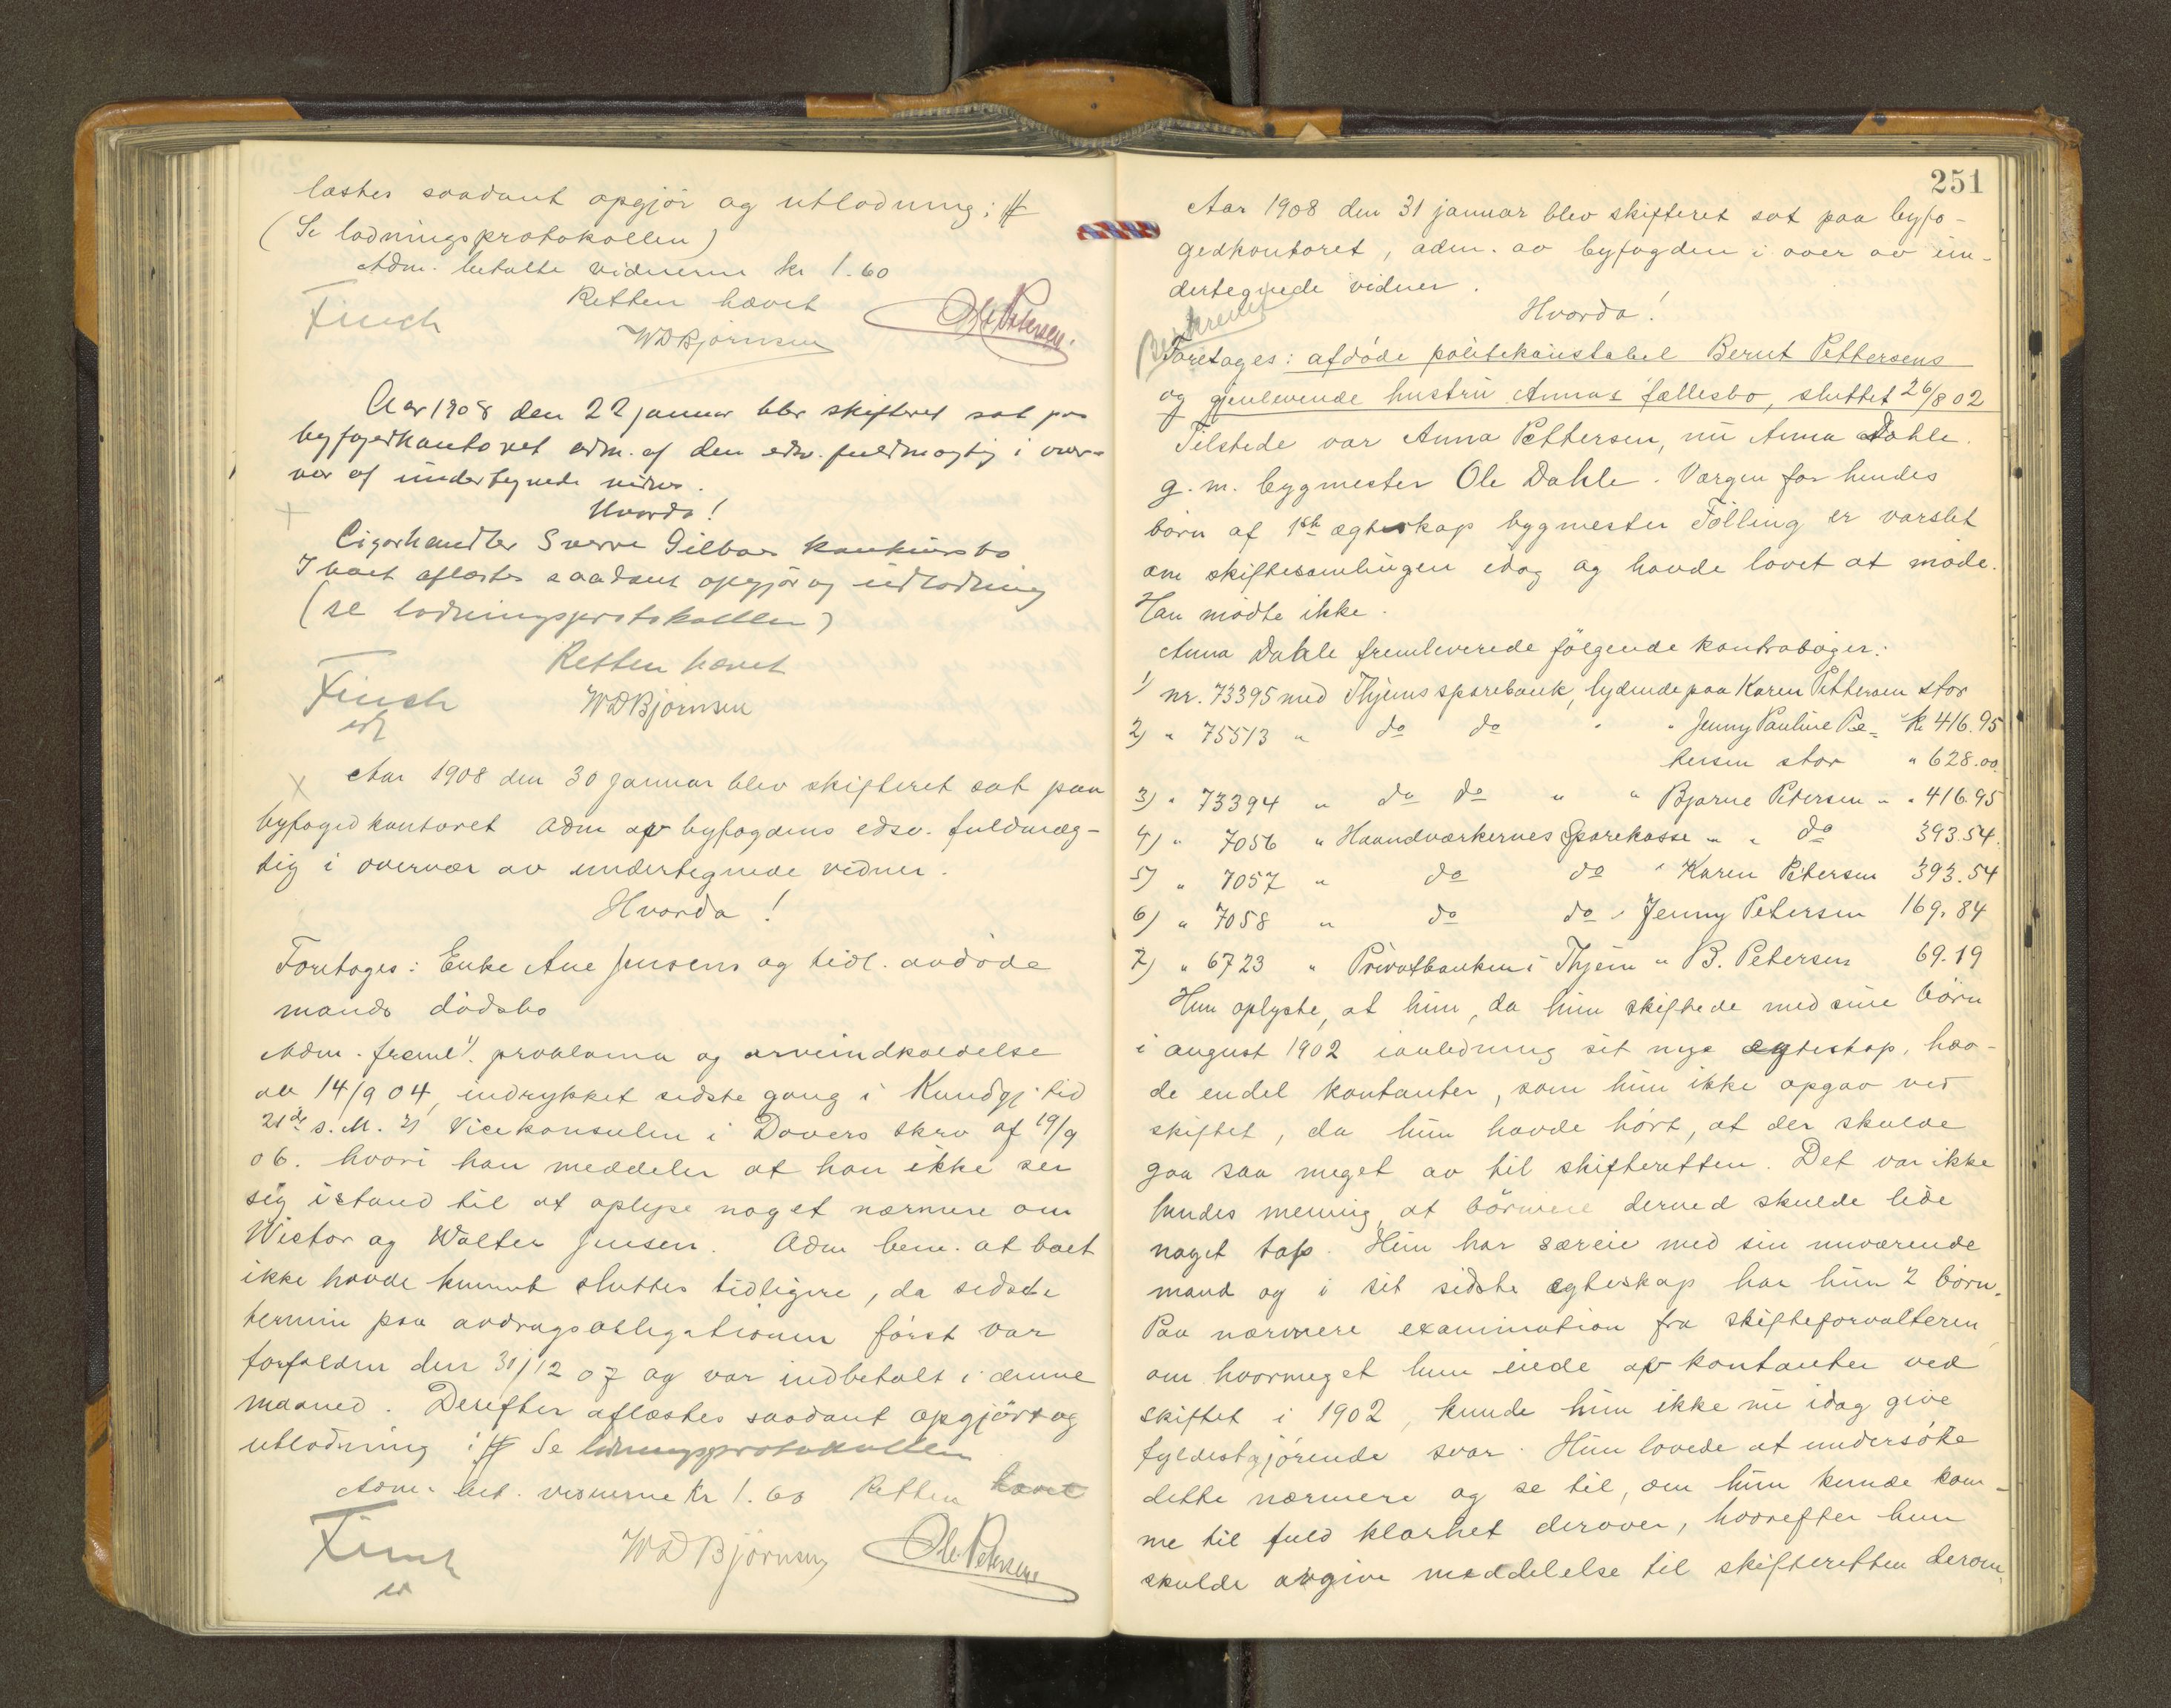 læstes saadant opgjör og utlodning: #
(Se lodningsprotokollen)
Adm. betalte vidnerne kr 1.60
Retten hævet
Finch
WDBjørnsen
Ole Petersen.
Aar 1908 den 22 januar blev skifteret sat paa
byfogedkontoret adm. af den edsv. fuldmægtig i over-
vær af undertegnede vidner.
Hvorda!
Cigarhandler Sverre Gilboes konkursbo
I boet aflæstes saadant opgjör og udlodning
(se lodningsprotokollen)
Retten hævet
Finch
WDBjørnsen
Aar 1908 den 30 januar blev skifteret sat paa
byfogedkontoret adm av byfogdens edsv. fuldmæg-
tig i overvær av undertegnede vidner.
Hvorda!
Foretages: Enke Ane Jensens og tidl. avdøde
mands dødsbo
Adm. freml 1). proklama og arveindkaldelse
av 14/9 04, indrykket sidste gang i Kundgj. tid
21de s. M. 2) Vicekonsulen i Dovers skrv af 19/9
06. hvori han meddeler at han ikke ser
sig istand til at oplyse noget nærmere om
Wictor og Walter Jensen. Adm bem. at boet
ikke havde kunnet sluttes tidligere, da sidste
termin paa avdragsobligationen først var
forfalden den 31/12 07 og var indbetalt i denne
maaned. Derefter aflæstes saadant opgjör og
utlodning: # Se lodningsprotokollen
Adm. bet. vidnerne kr 1.60 Retten hævet
Finch
WDBjørnsen
Ole Petersen
251
Aar 1908 den 31 januar blev skifteret sat paa byfo-
gedkontoret, adm. av byfogden i over av un-
dertegnede vidner.
Hvorda!
Beskrevet
Foretages: afdøde politikonstabel Bernt Pettersens
og gjenlevende hustru Annas fællesbo, sluttet 26/8 02
Tilstede var Anna Pettersen, nu Anna Dahle.
g. m. bygmester Ole Dahle. Værgen for hendes
børn af 1ste ægteskap bygmester Fölling er varslet
om skiftesamlingen idag og havde lovet at møde.
Han mødte ikke.
Anna Dahle fremleverede følgende kontrabøger:
1) nr. 73395 med Thjems sparebank, lydende paa Karen Pettersen stor
2) " 75513 " do do " " Jenny Pauline Pe- kr 416.95
tersen stor " 628.00
3) " 73394 " do do " " Bjarne Petersen " " 416.95
4) " 7056 " Haandværkernes Sparekasse " " do 393.54.
5) " 7057 " do do " Karen Petersen 393.54
6) " 7058 " do do " Jenny Petersen 169.84
7) " 6723 " Privatbanken i Thjem " B. Petersen 69.19
Hun oplyste, at hun, da hun skiftede med sine börn
i august 1902 ianledning sit nye ægteskap, hav-
de endel kontanter, som hun ikke opgav ved
skiftet, da hun havde hørt, at der skulde
gaa saa meget av til skifteretten. Det var ikke
hendes mening, at börnene derved skulde lide
noget tap. Hun har særeie med sin nuværende
mand og i sit sidste ægteskap har hun 2 börn.
Paa nærmere examination fra skifteforvalteren
om hvormeget hun eiede av kontanter ved
skiftet i 1902, kunde hun ikke nu idag give
fyldestgjørende svar. Hun lovede at undersøke
dette nærmere og se til, om hun kunde kom-
me til fuld klarhet derover, hvorefter hun
skulde avgive meddelelse til skifteretten derom.